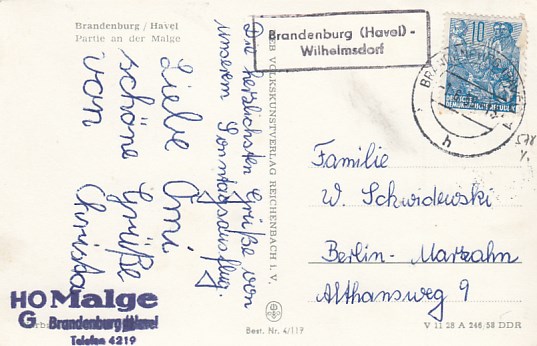 Brandenburg / Havel
Partie an der Malge
Brandenburg (Havel) -
Wilhelmsdorf
10
Die herzlichsten Grüße von
unserem Sonntagsausflug.
Liebe Omi
schöne Grüße
von Christa
VEB VOLKSKUNSTVERLAG REICHENBACH I. V.
Familie
W. Schwidewski
Berlin - Marzahn
Althansweg 9
HO Malge
G Brandenburg/Havel
Telefon 4219
Best. Nr. 4/119
V 11 28 A 246/58 DDR